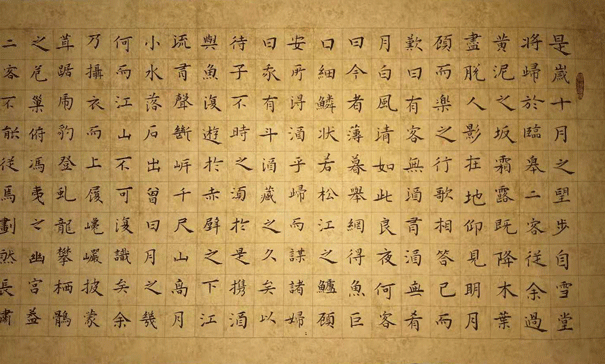 是歲十月之望步自雪堂
將歸於臨皋二客從余過
黃泥之坂霜露既降木葉
盡脫人影在地仰見明月
顧而樂之行歌相答已而
歎曰有客無酒有酒無肴
月白風清如此良夜何客
曰今者薄暮舉網得魚巨
口細鱗狀若松江之鱸顧
安所得酒乎歸而謀諸婦
曰我有斗酒藏之久矣以
待子不時之須於是攜酒
與魚復遊於赤壁之下江
流有聲斷岸千尺山高月
小水落石出曾日月之幾
何而江山不可復識矣余
乃攝衣而上履巉巖披蒙
茸踞虎豹登虬龍攀栖鶻
之危巢俯馮夷之幽宮蓋
二客不能從焉劃然長嘯